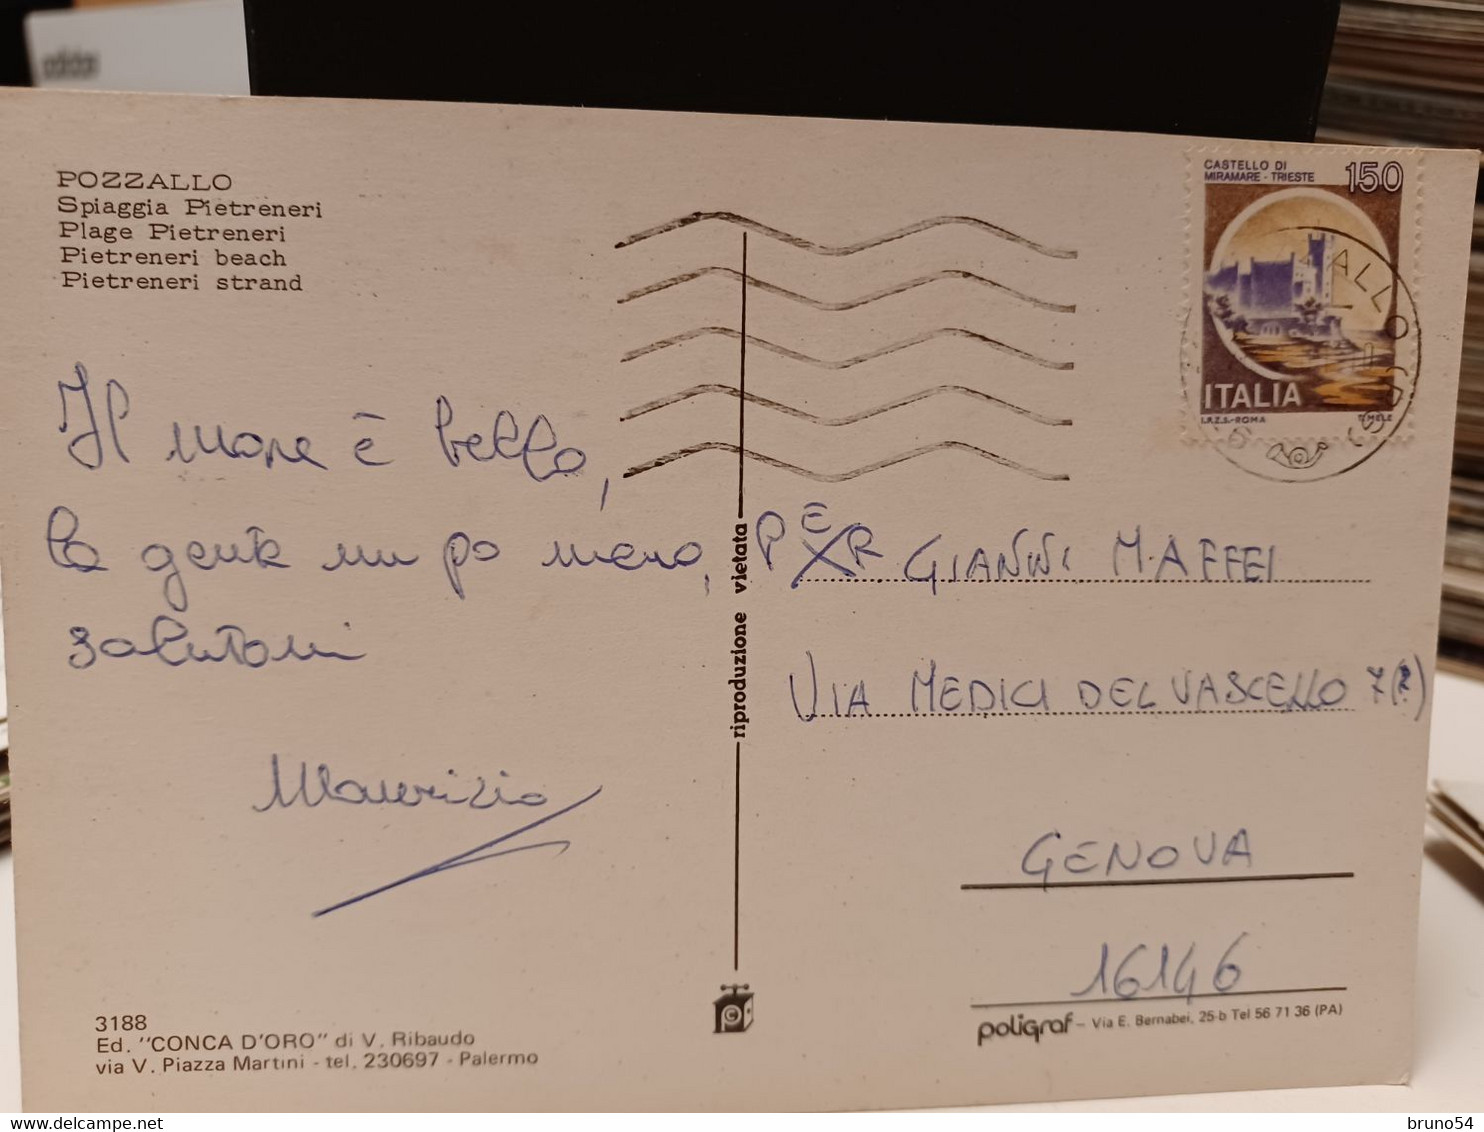 POZZALLO
Spiaggia Pietreneri
Plage Pietreneri
Pietreneri beach
Pietreneri strand
CASTELLO DI
MIRAMARE - TRIESTE
150
ITALIA
I.P.Z.S.-ROMA
Il mare è bello,
la gente un po meno,
salutoni
Maurizio
riproduzione vietata
PER GIANNI MAFFEI
VIA MEDICI DEL VASCELLO 7(?)
GENOVA
16146
3188
Ed. "CONCA D'ORO" di V. Ribaudo
via V. Piazza Martini - tel. 230697 - Palermo
poligraf - Via E. Bernabei, 25-b Tel 56 71 36 (PA)
bruno54